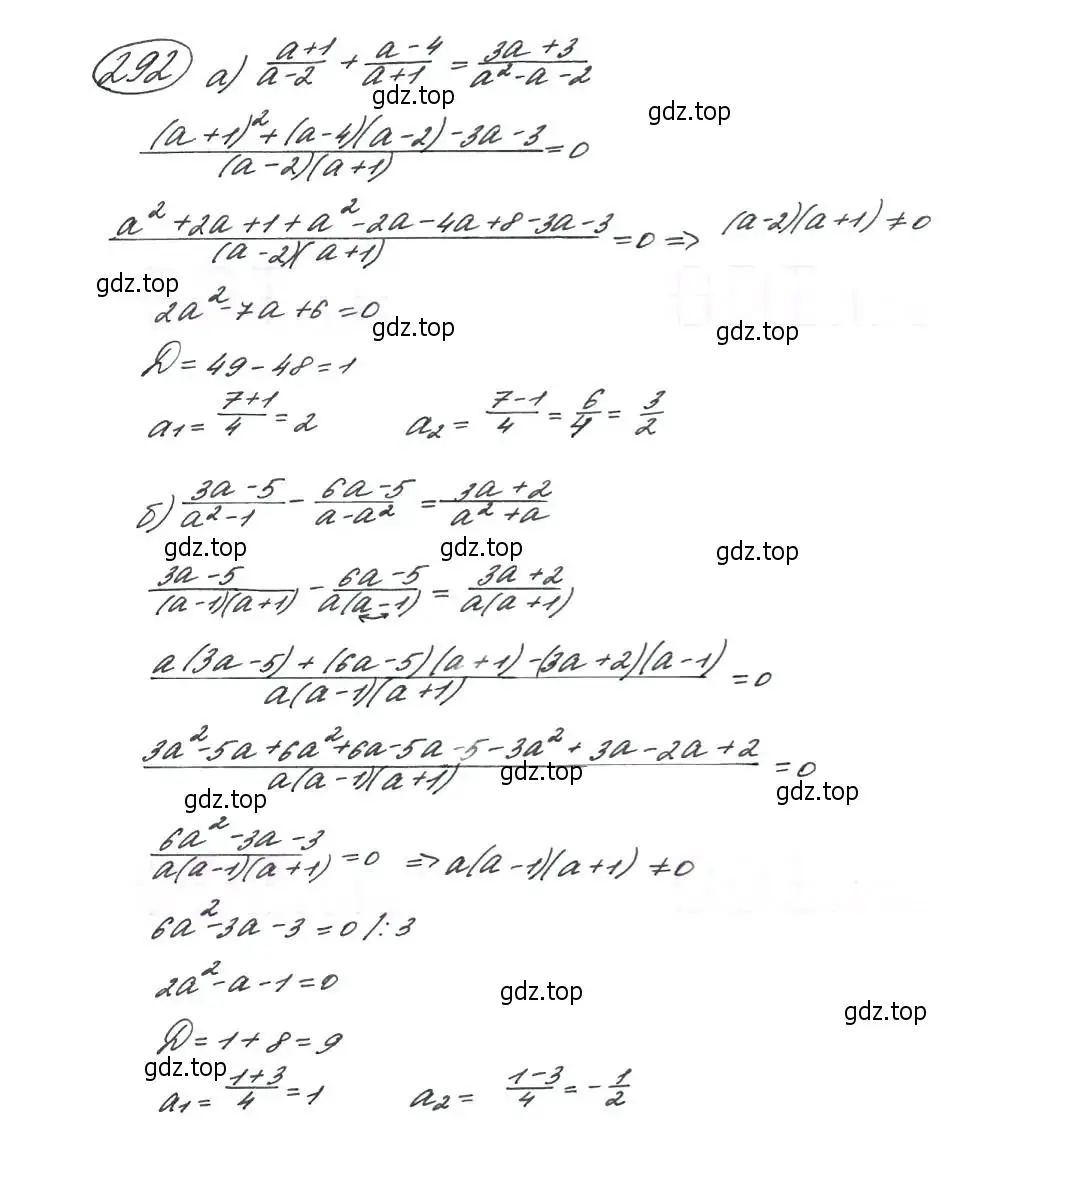 292 а) (a+1)/(a-2) + (a-4)/(a+1) = (3a+3)/(a²-a-2)
gdz.top
gdz.top
((a+1)²+(a-4)(a-2)-3a-3)/((a-2)(a+1)) = 0
(a²+2a+1+a²-2a-4a+8-3a-3)/((a-2)(a+1)) = 0 => (a-2)(a+1) ≠ 0
gdz.top
2a²-7a+6=0
gdz.top
gdz.top
D=49-48=1
a₁ = (7+1)/4 = 2 a₂ = (7-1)/4 = 6/4 = 3/2
б) (3a-5)/(a²-1) - (6a-5)/(a-a²) = (3a+2)/(a²+a)
gdz.top
gdz.top
gdz.top
(3a-5)/((a-1)(a+1)) - (6a-5)/(a(a-1)) = (3a+2)/(a(a+1))
(a(3a-5)+(6a-5)(a+1)-(3a+2)(a-1))/(a(a-1)(a+1)) = 0
(3a²-5a+6a²+6a-5a-5-3a²+3a-2a+2)/(a(a-1)(a+1)) = 0
gdz.top
gdz.top
gdz.top
(6a²-3a-3)/(a(a-1)(a+1)) = 0 => a(a-1)(a+1) ≠ 0
6a²-3a-3=0 /:3
2a²-a-1=0
gdz.top
gdz.top
D=1+8=9
gdz.top
a₁ = (1+3)/4 = 1 a₂ = (1-3)/4 = -1/2